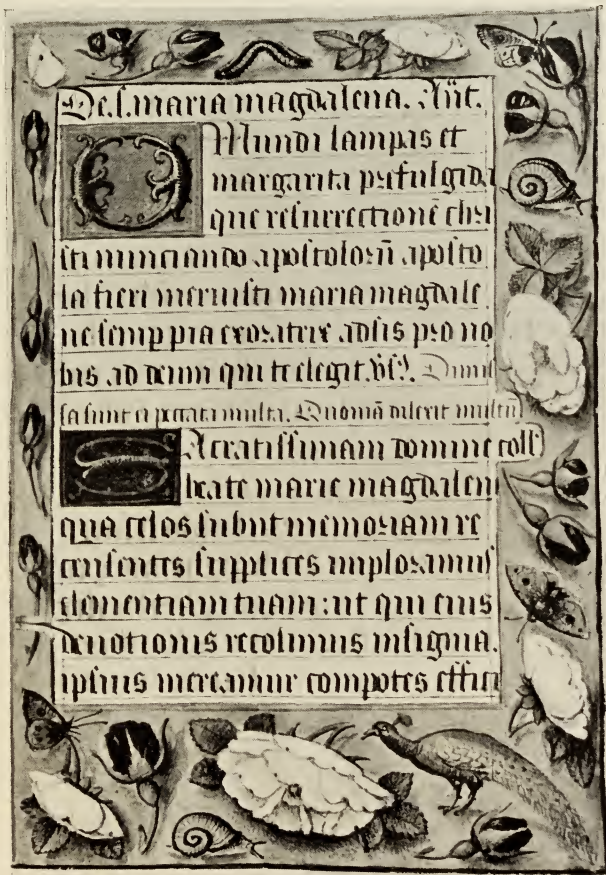 De .s. maria magdalena. Añt.
O Mundi lampas et
margarita prefulgida
que resurrectionē chri
sti nunciando apostolorū aposto
la fieri meruisti maria magdale
ne semp pia exoratrix adsis pro no
bis ad deum qui te elegit. Vs. Dimis
sa sunt ei peccata multa. Quoniā dilexit multū
Sacratissimam domine coll
beate marie magdalen
qua celos subiit memoriam re
censentes supplices imploramus
clementiam tuam: ut qui eius
deuotionis recolimus insignia.
ipsius mereamur compotes effici